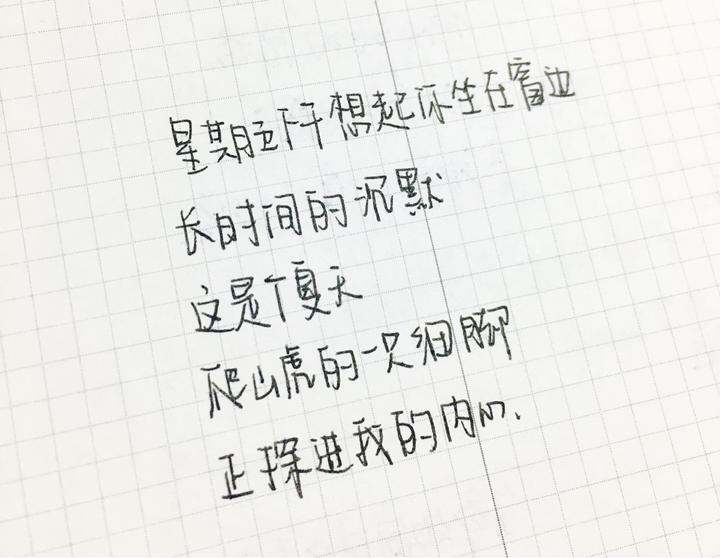 星期五下午想起你坐在窗边
长时间的沉默
这是个夏天
爬山虎的一只细脚
正探进我的内心.